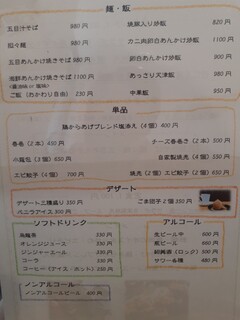 麺・飯
五目汁そば 980円
担々麺 980円
五目あんかけ焼きそば 980円
海鮮あんかけ焼きそば 1100円
ご飯(おかわり自由) 230円
焼豚入り炒飯 820円
カニ肉卵白あんかけ炒飯 920円
卵白あんかけ炒飯 900円
あっさり天津飯 980円
中華粥 850円
単品
鶏からあげブレンド塩添え(4個) 400円
春巻(2本) 450円
小籠包(3個) 650円
エビ餃子(4個) 700円
チーズ春巻き(2本) 500円
自家製焼売(4個) 530円
焼売(2個)エビ餃子(2個) 650円
デザート
デザート三種盛り 550円
バニラアイス 300円
ごま団子2個 350円
ソフトドリンク
烏龍茶 330円
オレンジジュース 330円
ジンジャーエール 330円
コーラ 330円
コーヒー(アイス・ホット) 330円
アルコール
生ビール中 600円
瓶ビール 660円
紹興酒(ロック) 500円
サワー各種 480円
ノンアルコール
ノンアルコールビール 400円